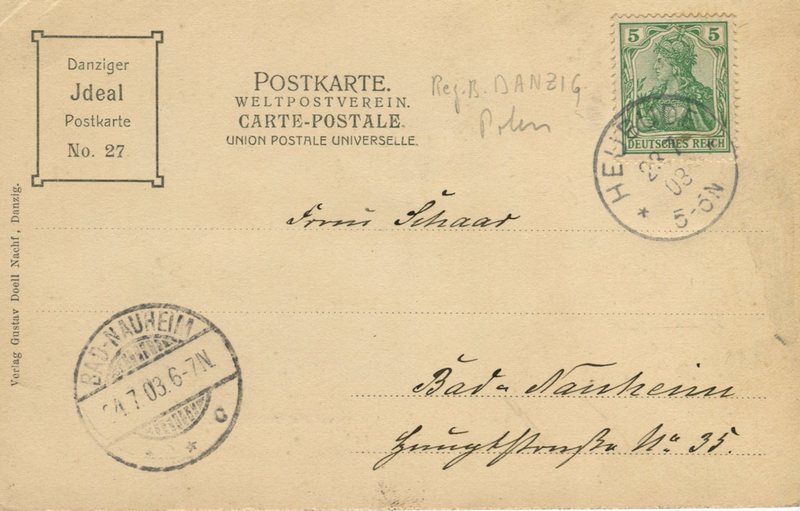 Danziger
Jdeal
Postkarte
No. 27
POSTKARTE.
WELTPOSTVEREIN.
CARTE-POSTALE.
UNION POSTALE UNIVERSELLE.
Reg. B. DANZIG
Polen
5 5
DEUTSCHES REICH
03
5-6N
Frau Schaar
Verlag Gustav Doell Nachf., Danzig.
BAD-NAUHEIM
24.7.03.6-7N.
c
Bad-Nauheim
Hauptstraße No. 35.